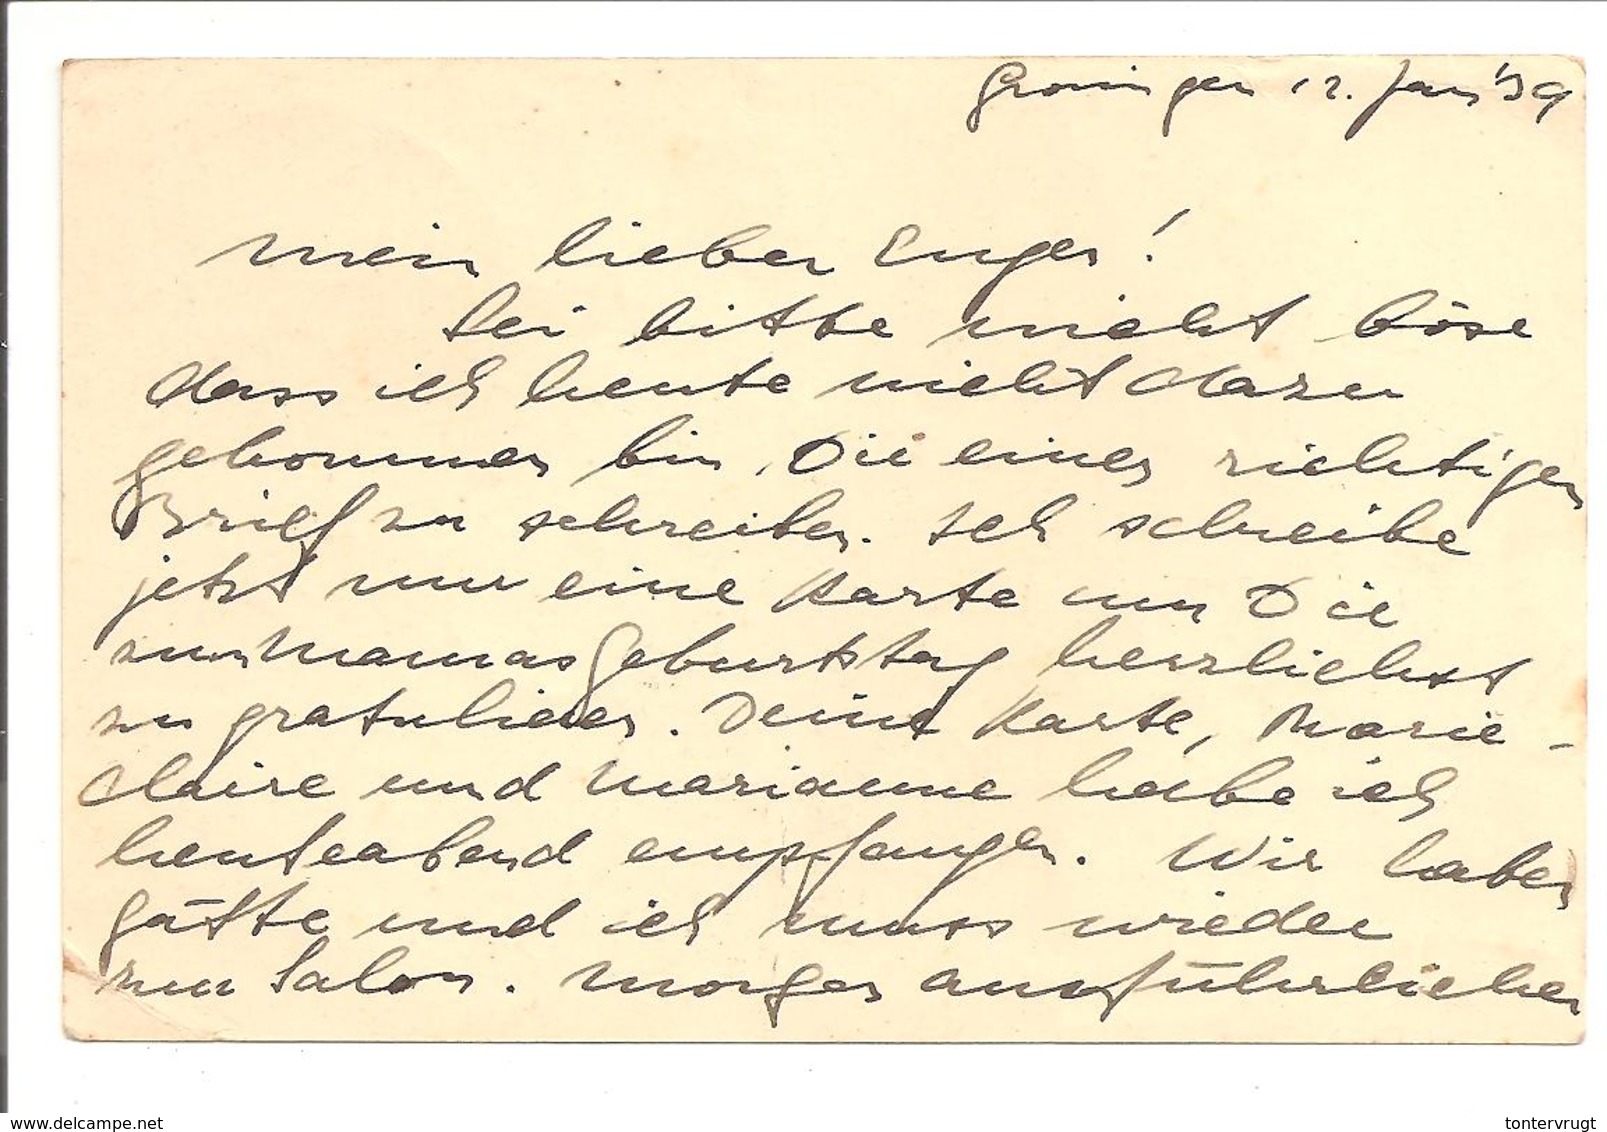 Groningen 12. Jan '39
Mein lieber Eugen!
Sei bitte nicht böse
dass ich heute nicht dazu
gekommen bin Dir einen richtigen
Brief zu schreiben. Ich schreibe
jetzt nur eine Karte um Dir
zum Mamas Geburtstag herzlichst
zu gratulieren. Deine Karte, Marie-
Claire und Marianne habe ich
heuteabend empfangen. Wir haben
Gäste und ich muss wieder
zum Salon. Morgen ausführlicher
www.delcampe.net
tontervrugt